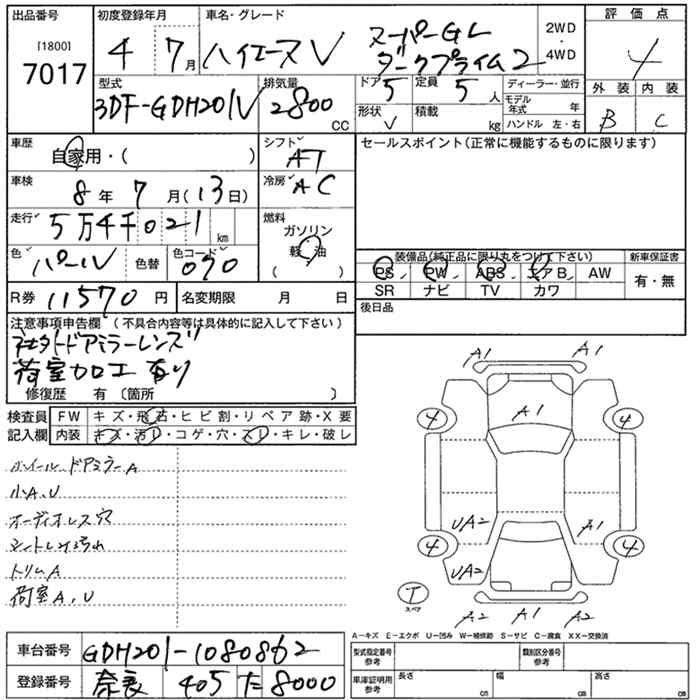 出品番号
[1800]
7017
初度登録年月
4 7月
車名・グレード
ハイエースV スーパーGL
ダークプライム2
2WD
・
4WD
評価点
4
外装 内装
B C
型式
3DF-GDH201V
排気量
2800
CC
ドア 5
定員 5人
形状 V
積載 kg
ディーラー・並行
モデル年式 年
ハンドル 左・右
車歴
自家用・( )
シフト
AT
セールスポイント(正常に機能するものに限ります)
車検
8年 7月(13日)
冷房
AC
走行
5万4千021km
燃料
ガソリン
軽油
( )
色
パール
色替
色コード
070
装備品(純正品に限り丸をつけて下さい)
新車保証書
PS PW ABS エアB AW
有・無
SR ナビ TV カワ
R券 11570円
名変期限 月 日
後日品
注意事項申告欄(不具合内容等は具体的に記入して下さい)
社外ドアミラーレンズ
荷室加工有り
修復歴 有 〔箇所 〕
検査員
記入欄
FW キズ・飛石・ヒビ割・リペア跡・X要
内装 キズ・汚レ・コゲ・穴・スレ・キレ・破レ
ホイールドアミラーA
小A、U
オーディオレス穴
シートレス汚れ
トリムA
荷室A、U
A1 A1
A1
4 4
UA2 A1
4 4
UA2
T
スペア
A2 A1 A2
A－キズ E－エクボ U－凹み W－補修跡 S－サビ C－腐食 XX－交換済
車台番号 GDH201-1080862
登録番号 奈良 405 た 8000
型式指定番号
参考
類別区分番号
参考
車庫証明用
参考
長さ cm
幅 cm
高さ cm